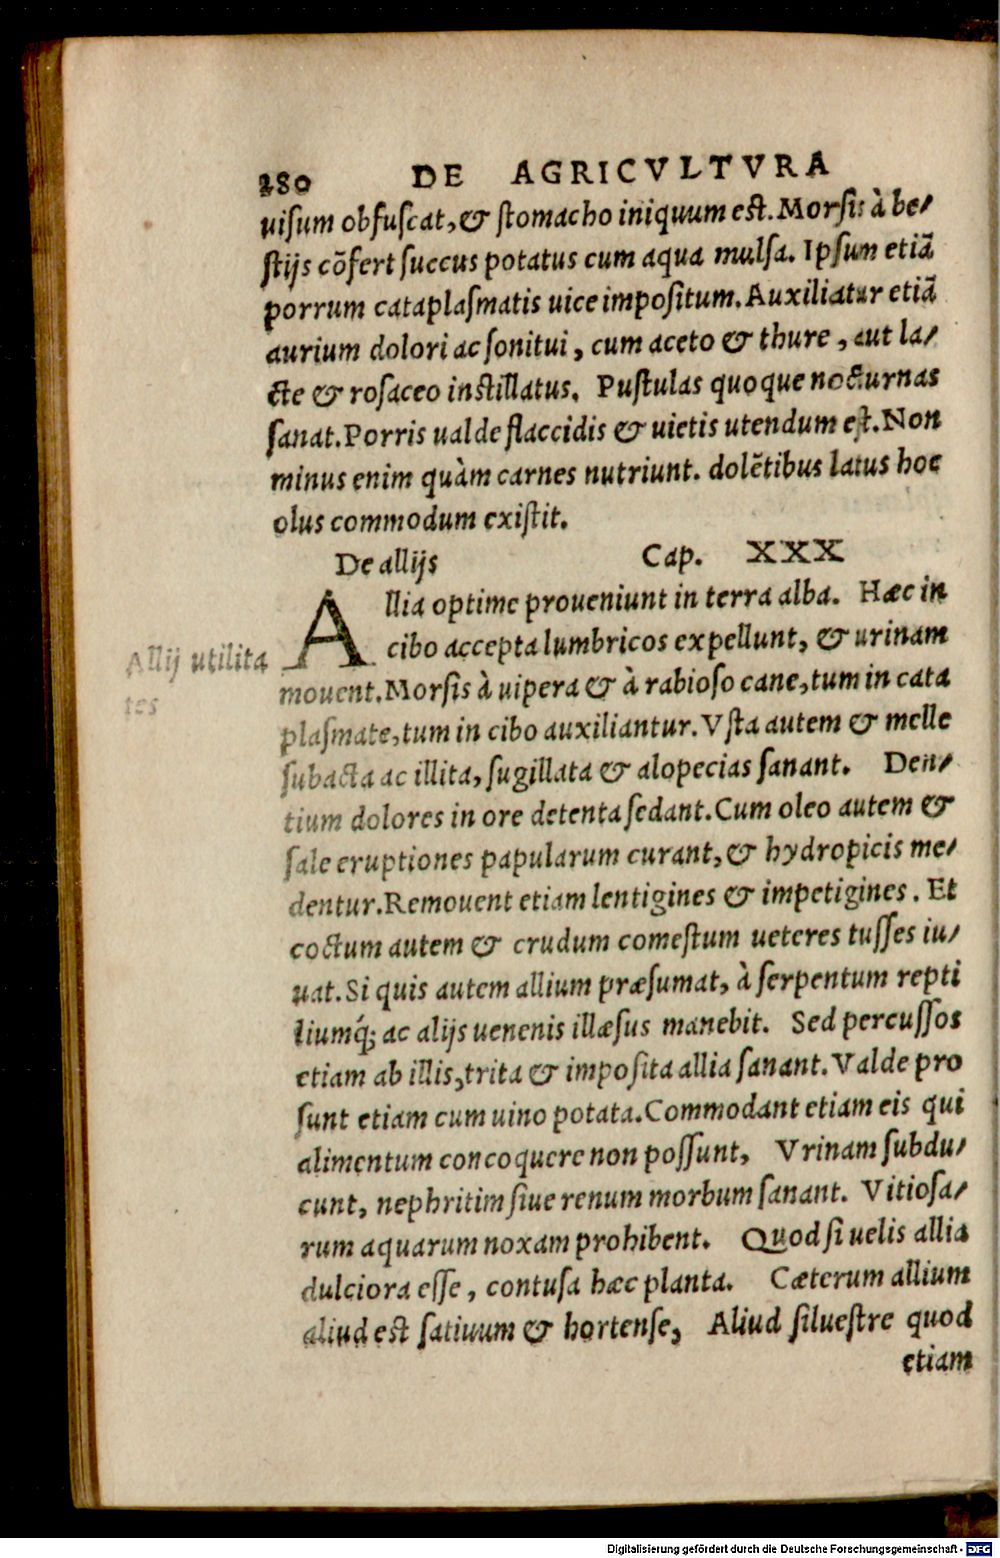 280 DE AGRICVLTVRA
uisum obfuscat, & stomacho iniquum est. Morsis à be/
stijs cõfert succus potatus cum aqua mulsa. Ipsum etiã
porrum cataplasmatis uice impositum. Auxiliatur etiã
aurium dolori ac sonitui, cum aceto & thure, aut la/
cte & rosaceo instillatus. Pustulas quoque nocturnas
sanat. Porris ualde flaccidis & uietis utendum est. Non
minus enim quàm carnes nutriunt. dolẽtibus latus hoc
olus commodum existit.
De allijs Cap. XXX
Allia optime proueniunt in terra alba. Hæc in
cibo accepta lumbricos expellunt, & urinam
Allij utilita
tes
mouent. Morsis à uipera & à rabioso cane, tum in cata
plasmate, tum in cibo auxiliantur. Vsta autem & melle
subacta ac illita, sugillata & alopecias sanant. Den/
tium dolores in ore detenta sedant. Cum oleo autem &
sale eruptiones papularum curant, & hydropicis me/
dentur. Remouent etiam lentigines & impetigines. Et
coctum autem & crudum comestum ueteres tusses iu/
uat. Si quis autem allium præsumat, à serpentum repti
liumq́; ac alijs uenenis illæsus manebit. Sed percussos
etiam ab illis, trita & imposita allia sanant. Valde pro
sunt etiam cum uino potata. Commodant etiam eis qui
alimentum concoquere non possunt, Vrinam subdu/
cunt, nephritim siue renum morbum sanant. Vitiosa/
rum aquarum noxam prohibent. Quod si uelis allia
dulciora esse, contusa hæc planta. Cæterum allium
aliud est satiuum & hortense, Aliud siluestre quod
etiam
Digitalisierung gefördert durch die Deutsche Forschungsgemeinschaft - DFG